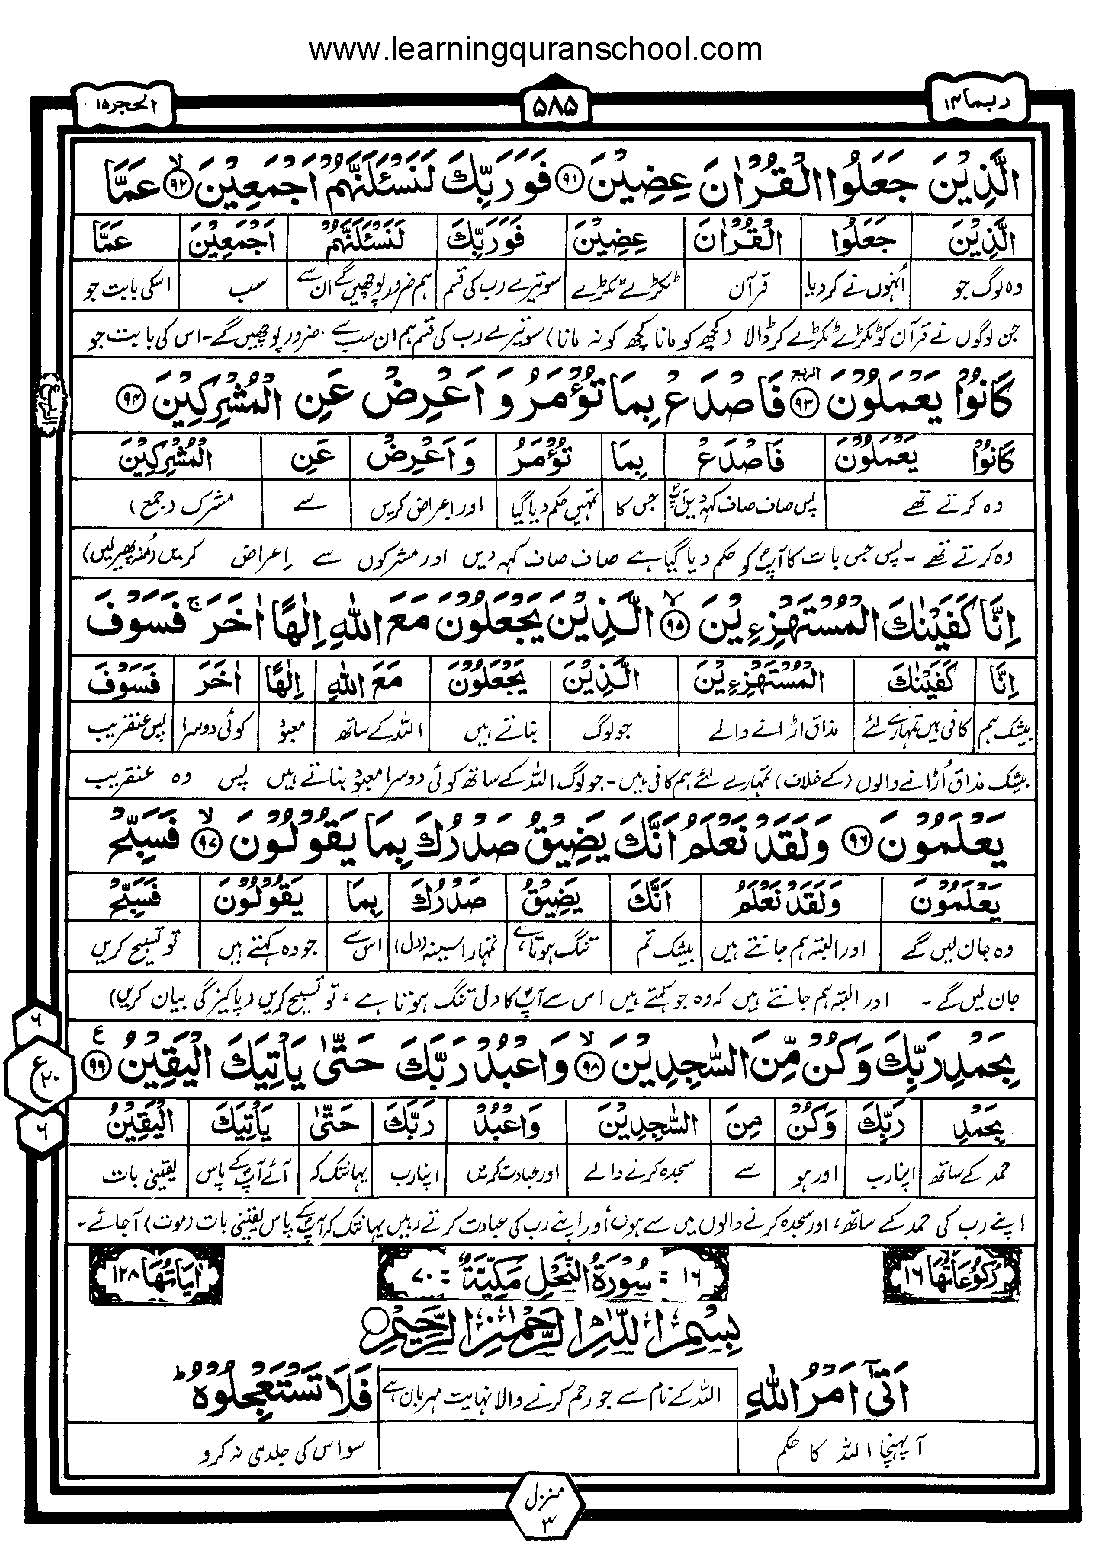 www.learningquranschool.com
ربما ١٤
٥٨٥
الحجر ١٥
الَّذِيْنَ جَعَلُوا الْقُرْاٰنَ عِضِيْنَ ۹۱ فَوَرَبِّكَ لَنَسْـَٔلَنَّهُمْ اَجْمَعِيْنَ ۙ ۹۲ عَمَّا
الَّذِيْنَ جَعَلُوا الْقُرْاٰنَ عِضِيْنَ فَوَرَبِّكَ لَنَسْـَٔلَنَّهُمْ اَجْمَعِيْنَ عَمَّا
وہ لوگ جو انہوں نے کر دیا قرآن ٹکڑے ٹکڑے سو تیرے رب کی قسم ہم ضرور پوچھیں گے ان سے سب اسکی بابت جو
جن لوگوں نے قرآن کو ٹکڑے ٹکڑے کر ڈالا (کچھ کو مانا کچھ کو نہ مانا) سو تیرے رب کی قسم ہم ان سب سے ضرور پوچھیں گے۔ اس کی بابت جو
كَانُوْا يَعْمَلُوْنَ ۹۳ الربع فَاصْدَعْ بِمَا تُؤْمَرُ وَاَعْرِضْ عَنِ الْمُشْرِكِيْنَ ۹۴
كَانُوْا يَعْمَلُوْنَ فَاصْدَعْ بِمَا تُؤْمَرُ وَاَعْرِضْ عَنِ الْمُشْرِكِيْنَ
وہ کرتے تھے پس صاف صاف کہہ دیں آپ جس کا تمہیں حکم دیا گیا اور اعراض کریں سے مشرک (جمع)
وہ کرتے تھے۔ پس جس بات کا آپ کو حکم دیا گیا ہے صاف صاف کہہ دیں اور مشرکوں سے اعراض کریں (منہ پھیر لیں)
اِنَّا كَفَيْنٰكَ الْمُسْتَهْزِءِيْنَ ۙ ۹۵ الَّذِيْنَ يَجْعَلُوْنَ مَعَ اللّٰهِ اِلٰهًا اٰخَرَ ۚ فَسَوْفَ
اِنَّا كَفَيْنٰكَ الْمُسْتَهْزِءِيْنَ الَّذِيْنَ يَجْعَلُوْنَ مَعَ اللّٰهِ اِلٰهًا اٰخَرَ فَسَوْفَ
بیشک ہم کافی ہیں تمہارے لئے مذاق اڑانے والے جو لوگ بناتے ہیں اللہ کے ساتھ معبود کوئی دوسرا پس عنقریب
بیشک مذاق اُڑانے والوں (کے خلاف) تمہارے لئے ہم کافی ہیں۔ جو لوگ اللہ کے ساتھ کوئی دوسرا معبود بناتے ہیں پس وہ عنقریب
يَعْلَمُوْنَ ۹۶ وَلَقَدْ نَعْلَمُ اَنَّكَ يَضِيْقُ صَدْرُكَ بِمَا يَقُوْلُوْنَ ۙ ۹۷ فَسَبِّحْ
يَعْلَمُوْنَ وَلَقَدْ نَعْلَمُ اَنَّكَ يَضِيْقُ صَدْرُكَ بِمَا يَقُوْلُوْنَ فَسَبِّحْ
وہ جان لیں گے اور البتہ ہم جانتے ہیں بیشک تم تنگ ہوتا ہے تمہارا سینہ (دل) اس سے جو وہ کہتے ہیں تو تسبیح کریں
جان لیں گے۔ اور البتہ ہم جانتے ہیں کہ وہ جو کہتے ہیں اس سے آپ کا دل تنگ ہوتا ہے، تو تسبیح کریں (پاکیزگی بیان کریں)
بِحَمْدِ رَبِّكَ وَكُنْ مِّنَ السّٰجِدِيْنَ ۙ ۹۸ وَاعْبُدْ رَبَّكَ حَتّٰى يَاْتِيَكَ الْيَقِيْنُ ۹۹ ع
٦
ع ٢٠
٦
بِحَمْدِ رَبِّكَ وَكُنْ مِنَ السّٰجِدِيْنَ وَاعْبُدْ رَبَّكَ حَتّٰى يَاْتِيَكَ الْيَقِيْنُ
حمد کے ساتھ اپنا رب اور ہو سے سجدہ کرنے والے اور عبادت کریں اپنا رب یہانتک کہ آئے آپ کے پاس یقینی بات
اپنے رب کی حمد کے ساتھ، اور سجدہ کرنے والوں میں سے ہوں، اور اپنے رب کی عبادت کرتے رہیں یہانتک کہ آپ کے پاس یقینی بات (موت) آجائے۔
رُكُوْعَاتُهَا ١٦
١٦ = سُوْرَةُ النَّحْلِ مَكِّيَّةٌ = ٧٠
اٰيَاتُهَا ١٢٨
بِسْمِ اللّٰهِ الرَّحْمٰنِ الرَّحِيْمِ
اَتٰٓى اَمْرُ اللّٰهِ اللہ کے نام سے جو رحم کرنے والا نہایت مہربان ہے فَلَا تَسْتَعْجِلُوْهُ ؕ
آ پہنچا اللہ کا حکم سو اس کی جلدی نہ کرو
منزل ٣